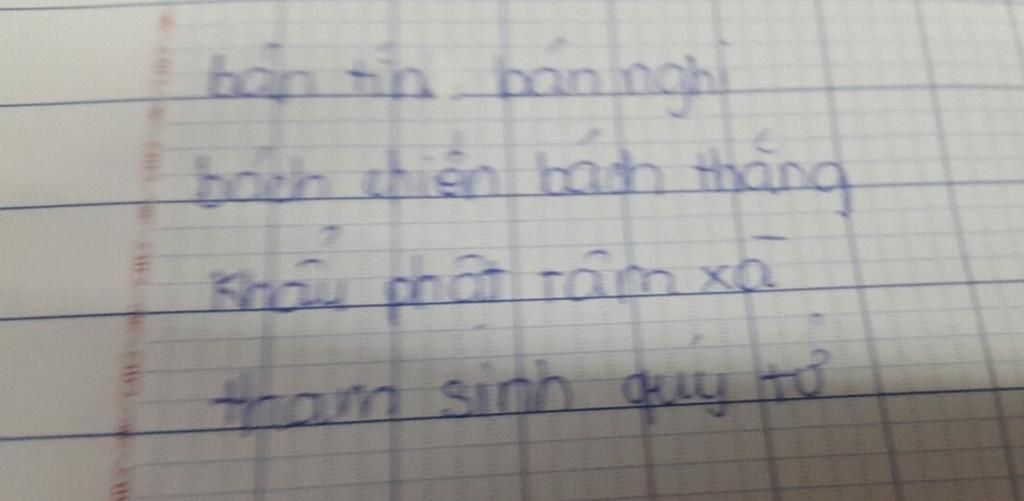 bán tín bán nghi
bách chiến bách thắng
khẩu phật tâm xà
tham sinh quý tử